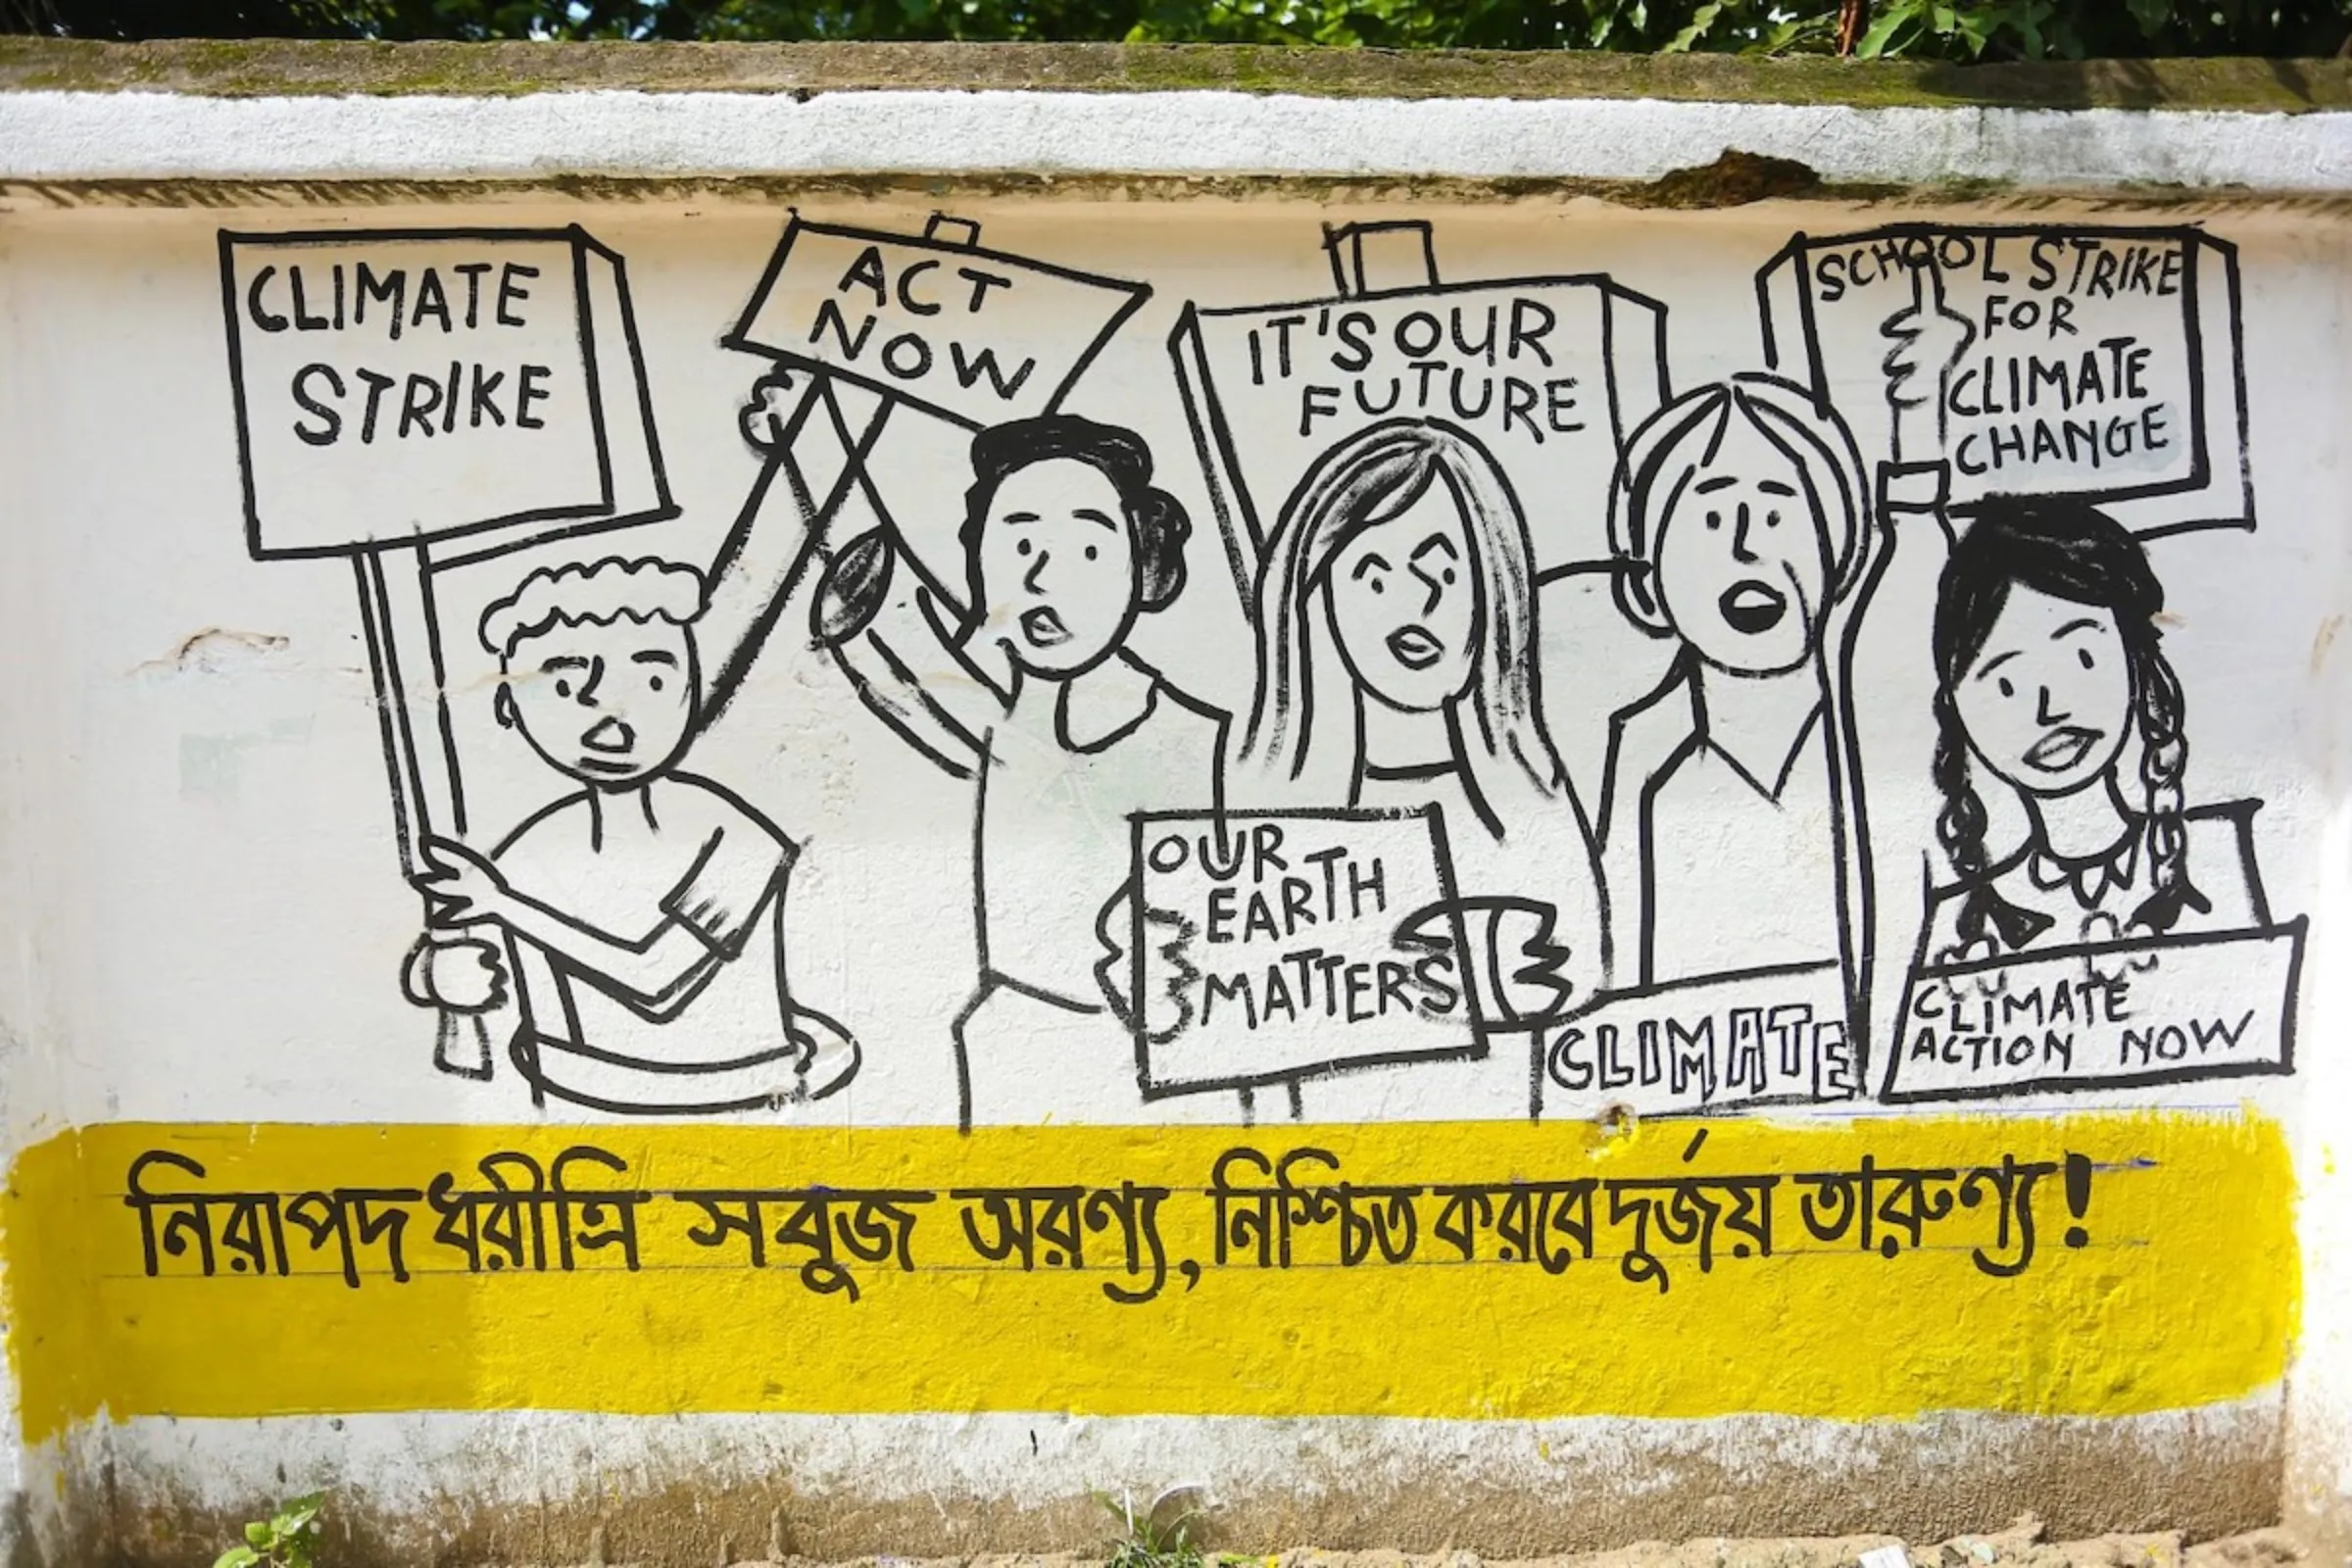 CLIMATE
STRIKE
ACT
NOW
IT'S OUR
FUTURE
SCHOOL STRIKE
FOR
CLIMATE
CHANGE
OUR
EARTH
MATTERS
CLIMATE
CLIMATE
ACTION NOW
নিরাপদ ধরীত্রি সবুজ অরণ্য, নিশ্চিত করবে দুর্জয় তারুণ্য!